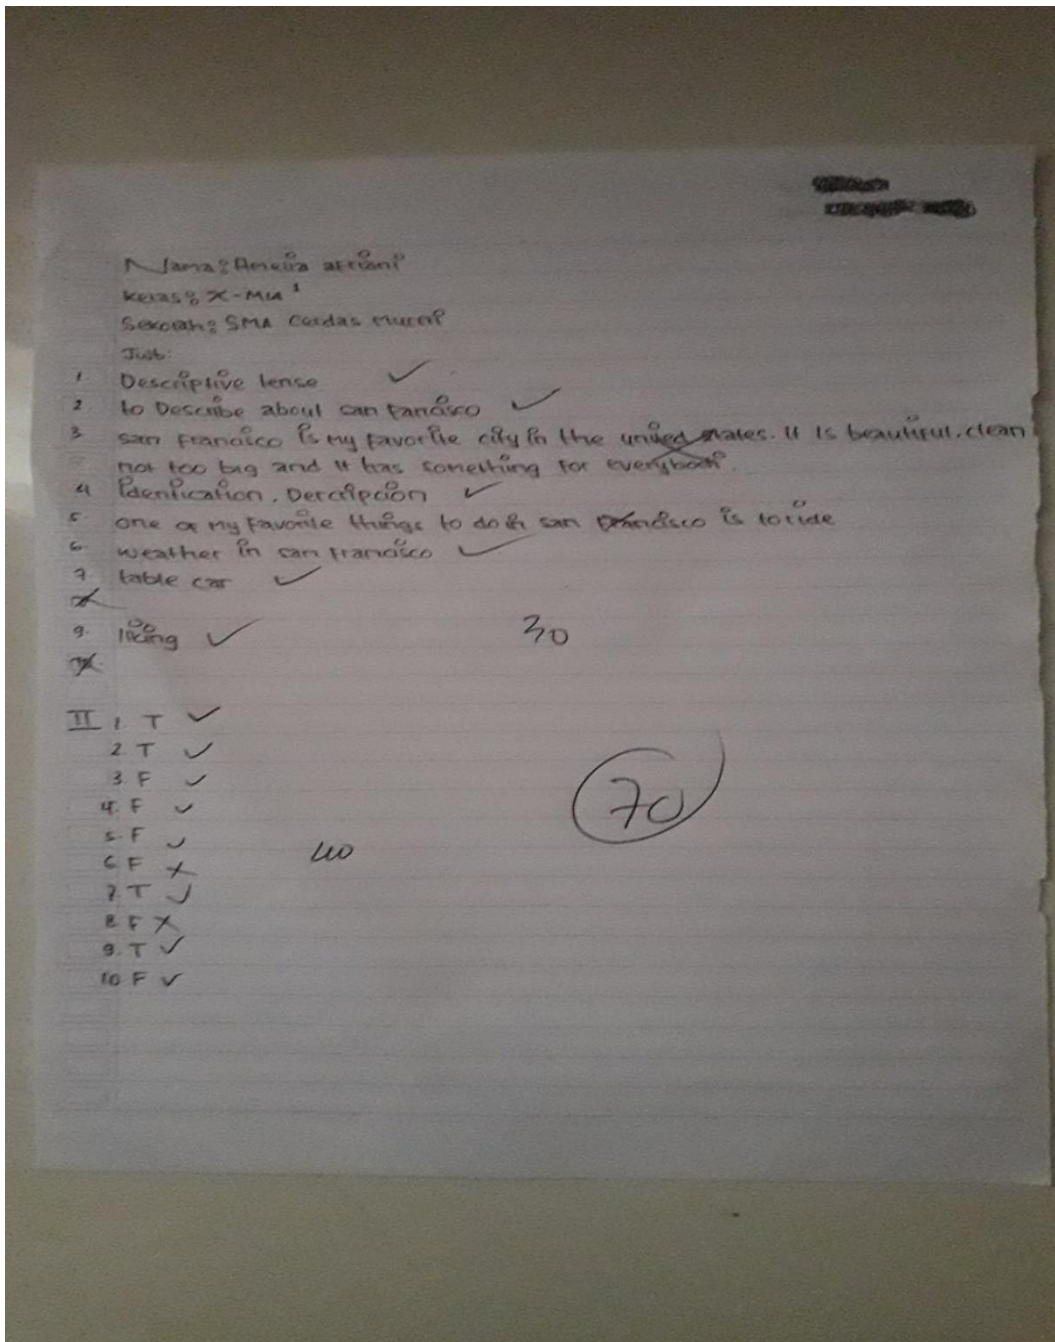 Nama: Amelia afriani
Kelas: X-MIA 1
Sekolah: SMA Cerdas Murni
Jwb:
1 Descriptive tense
2 to Describe about san Fancisco
3 san Francisco is my favorite city in the united states. it is beautiful. clean
not too big and it has something for everybody.
4 Idenfication, Dercripcion
5 one of my favorite things to do in san Francisco is to ride
6 weather in san francisco
7 table car
9. liking
30
II 1 T
2 T
3 F
4. F
5. F
6 F
7. T
8. F
9. T
10 F
40
70